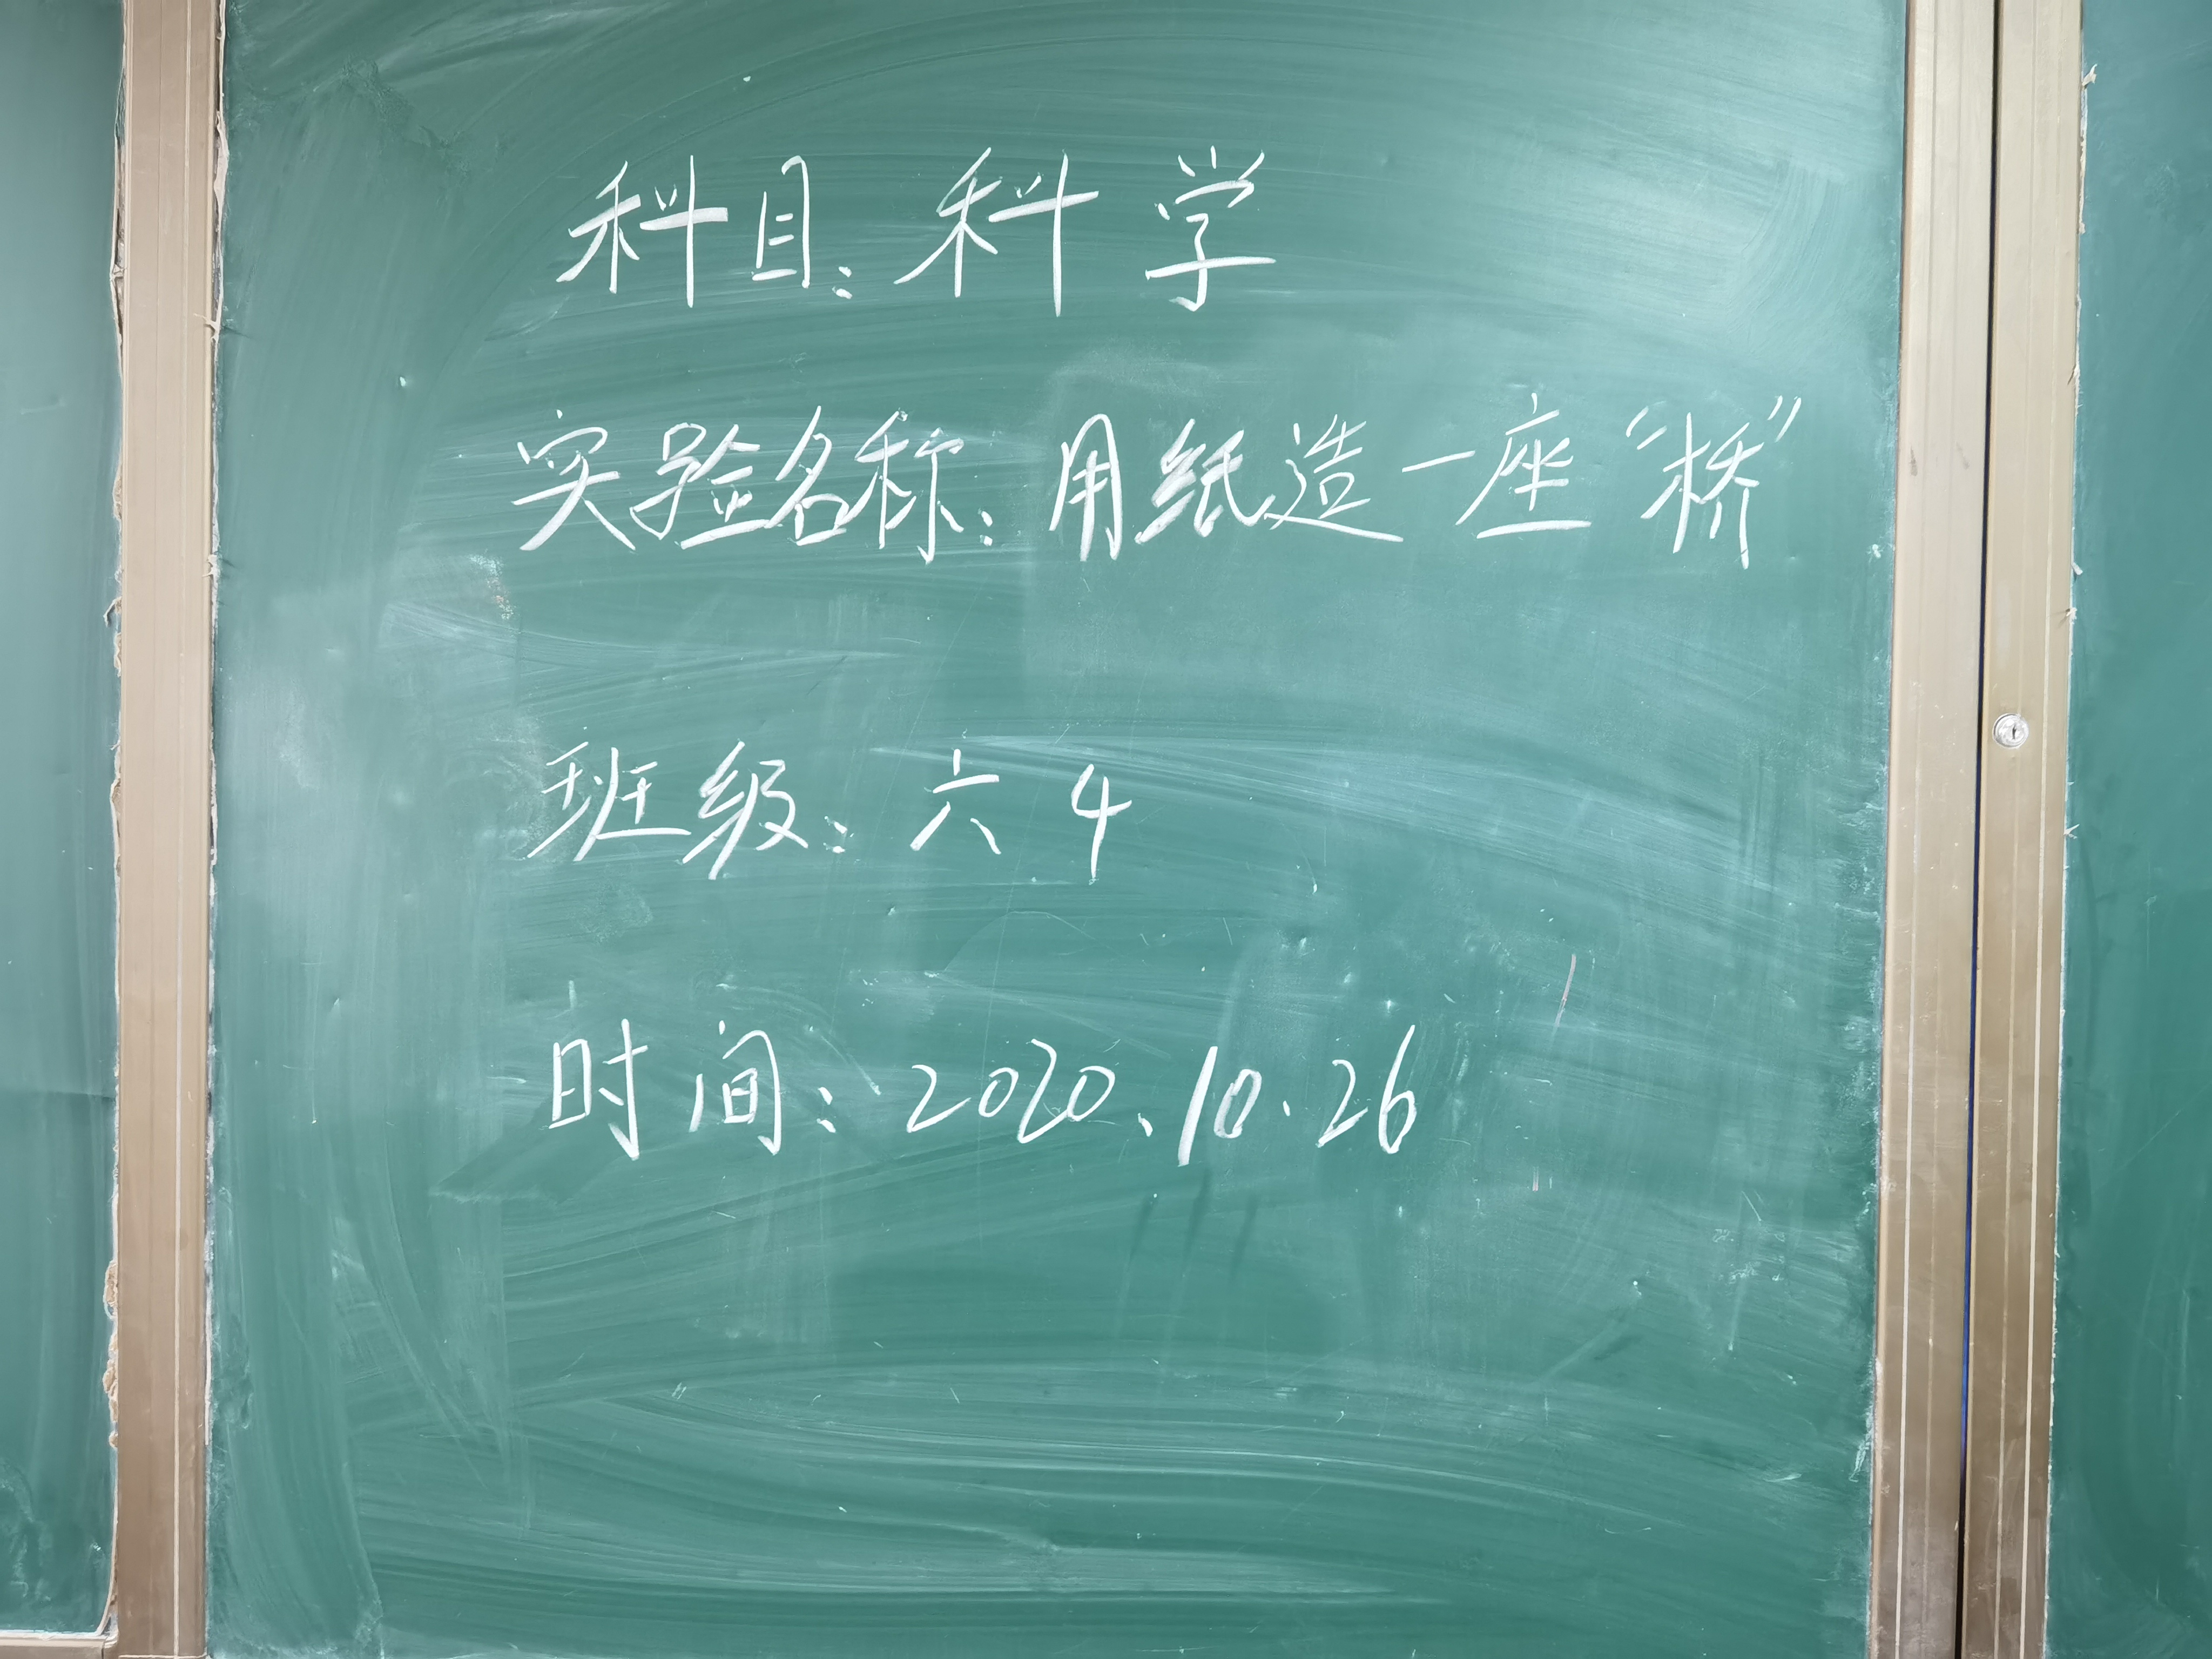 科目:科学
实验名称:用纸造一座“桥”
班级:六4
时间:2020、10.26